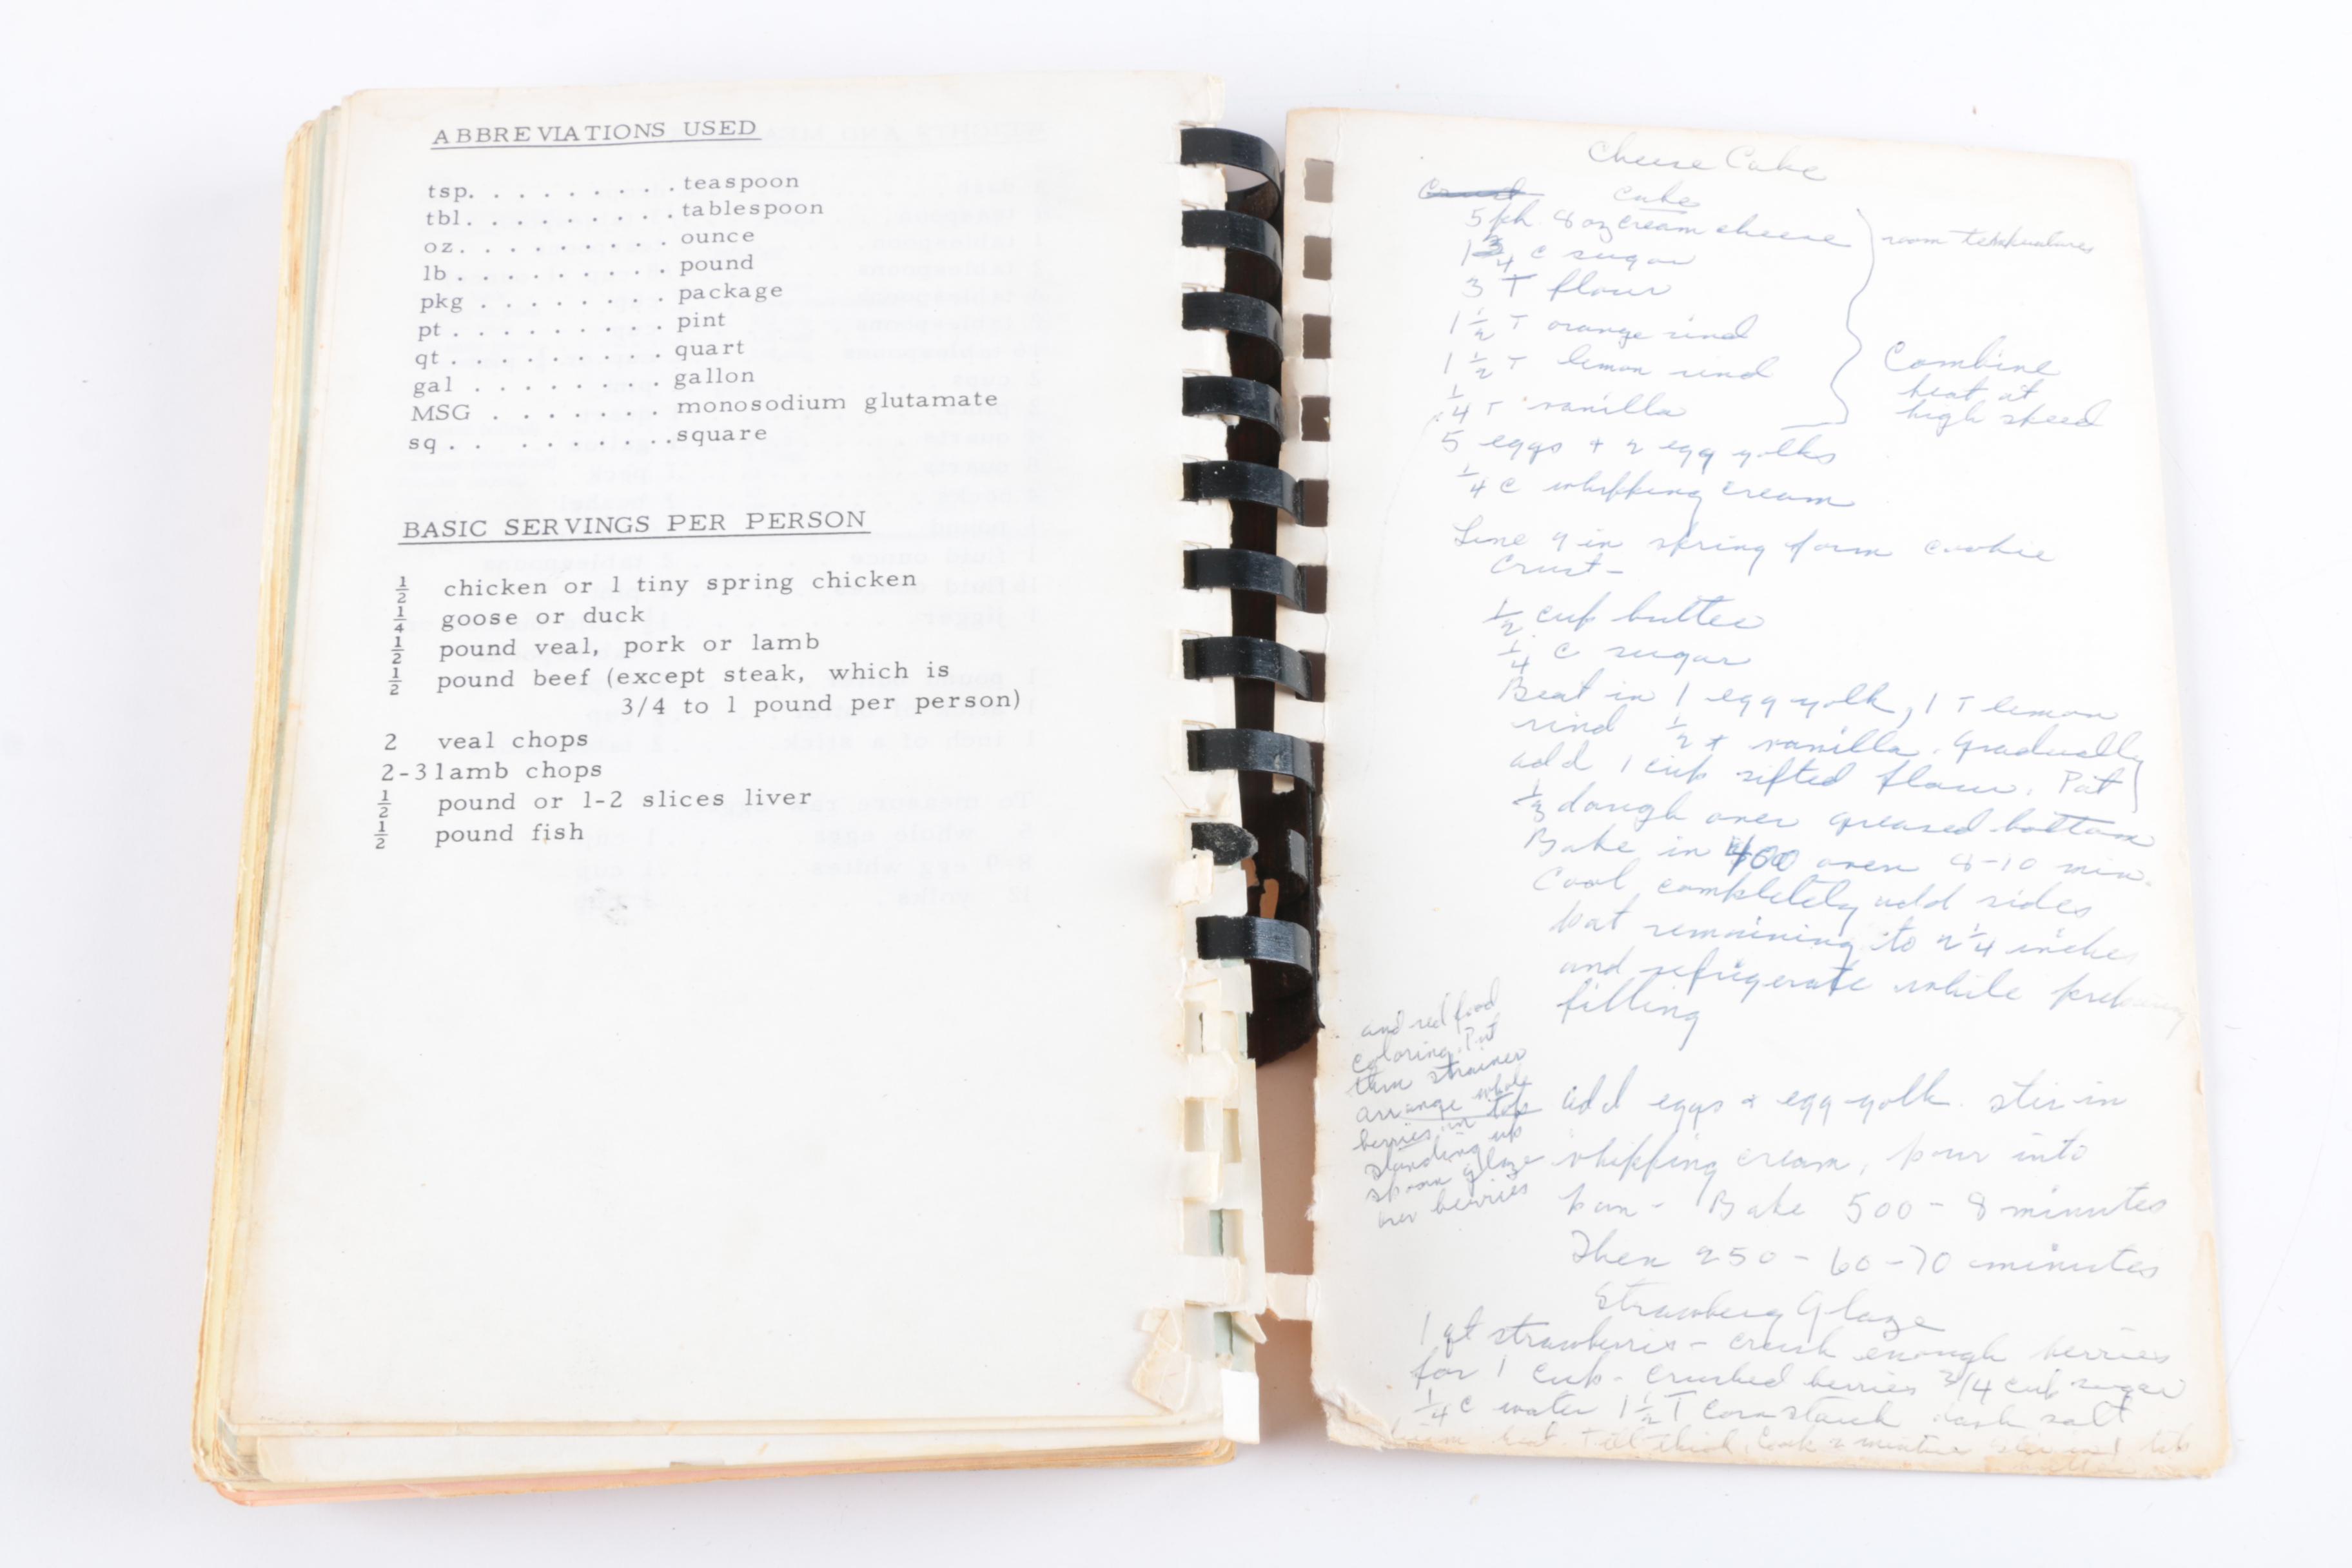 ABBREVIATIONS USED
tsp. . . . . . . . . . teaspoon
tbl. . . . . . . . . . tablespoon
oz. . . . . . . . . . ounce
lb . . . . . . . . . pound
pkg . . . . . . . . package
pt . . . . . . . . . pint
qt . . . . . . . . . quart
gal . . . . . . . . gallon
MSG . . . . . . . monosodium glutamate
sq . . . . . . . . . square
BASIC SERVINGS PER PERSON
½ chicken or 1 tiny spring chicken
¼ goose or duck
½ pound veal, pork or lamb
½ pound beef (except steak, which is
3/4 to 1 pound per person)
2 veal chops
2-3 lamb chops
½ pound or 1-2 slices liver
½ pound fish
Cheese Cake
Crust cake
5 pk 8 oz cream cheese
room temperatures
1 3/4 c sugar
3 T flour
1 ½ T orange rind
1 ½ T lemon rind
Combine
beat at
high speed
¼ T vanilla
5 eggs + 2 egg yolks
¼ c whipping cream
Line 9 in spring form cookie
crust-
½ cup butter
¼ c sugar
Beat in 1 egg yolk, 1 T lemon
rind ½ t vanilla. Gradually
add 1 cup sifted flour. Pat
⅓ dough over greased bottom
Bake in 400 oven 8-10 min.
Cool completely add sides
pat remaining to 2¼ inches
and refrigerate while preparing
filling
add eggs + egg yolk. stir in
whipping cream, pour into
pan - Bake 500 - 8 minutes
Then 250 - 60-70 minutes
Strawberry Glaze
1 qt strawberries - crush enough berries
for 1 cup - crushed berries 3/4 cup sugar
¼ c water 1½ T cornstarch dash salt
boil till thick. Cook 2 minutes stir in 1
butter
and red food
coloring. Put
thru strainer
arrange whole
berries in tops
standing up
spoon glaze
over berries